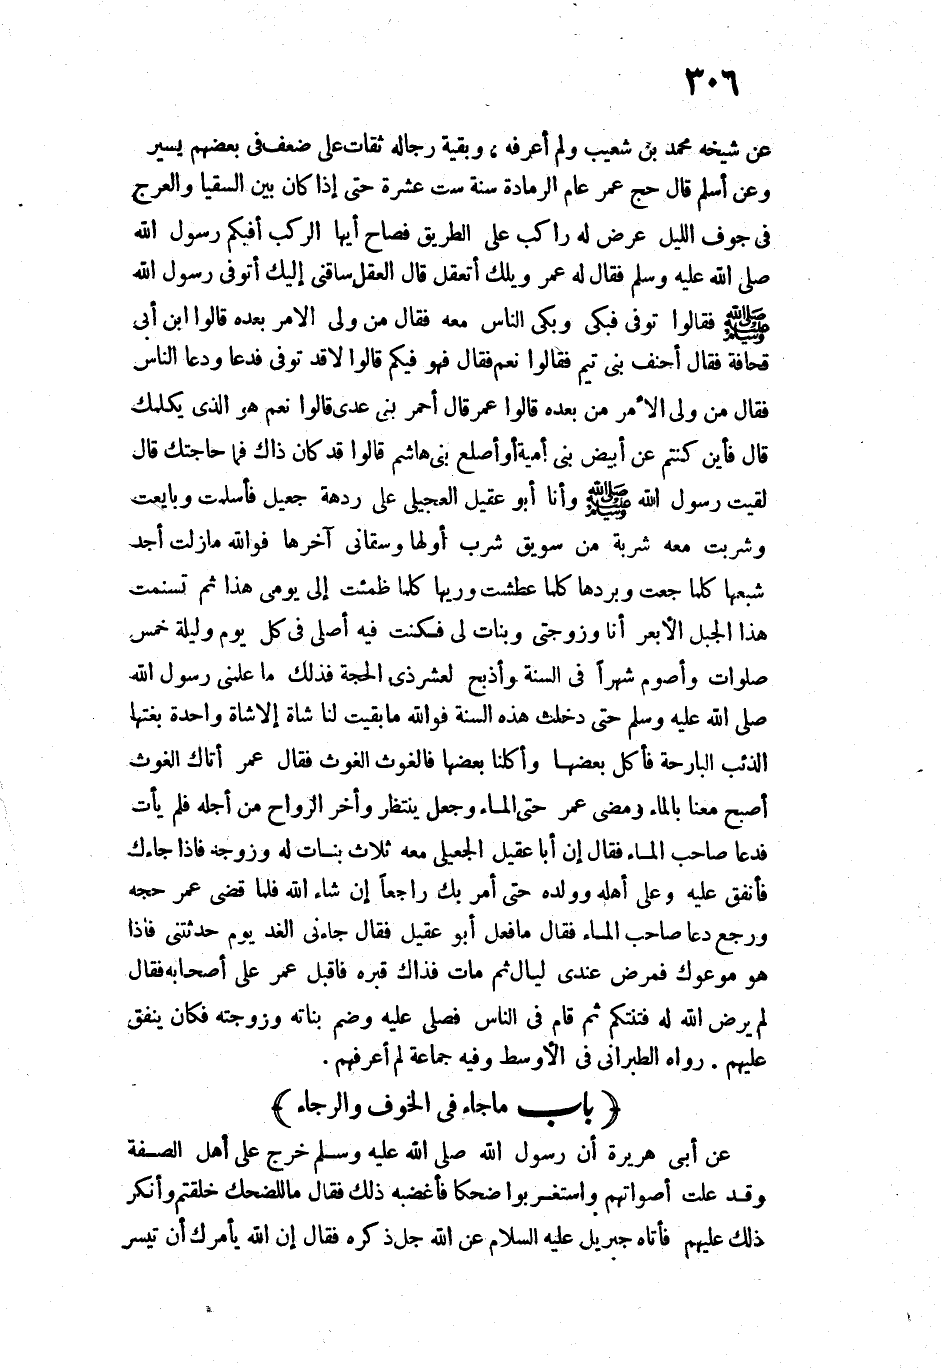 ٣٠٦
عن شيخه محمد بن شعيب ولم أعرفه ، وبقية رجاله ثقات على ضعف فى بعضهم يسير
وعن أسلم قال حج عمر عام الرمادة سنة ست عشرة حتى إذا كان بين السقيا والعرج
فى جوف الليل عرض له راكب على الطريق فصاح أيها الركب أفيكم رسول الله
صلى الله عليه وسلم فقال له عمر ويلك أتعقل قال العقل ساقنى إليك أتوفى رسول الله
ﷺ فقالوا توفى فبكى وبكى الناس معه فقال من ولى الامر بعده قالوا ابن أبى
قحافة فقال أحنف بنى تيم فقالوا نعم فقال فهو فيكم قالوا لا قد توفى فدعا ودعا الناس
فقال من ولى الأمر من بعده قالوا عمر قال أحمر بنى عدى قالوا نعم هو الذى يكلمك
قال فأين كنتم عن أبيض بنى أمية أو أصلع بنى هاشم قالوا قد كان ذاك فما حاجتك قال
لقيت رسول الله ﷺ وأنا أبو عقيل العجيلى على ردهة جعيل فأسلمت وبايعت
وشربت معه شربة من سويق شرب أولها وسقانى آخرها فوالله مازلت أجد
شبعها كلما جعت وبردها كلما عطشت وريها كلما ظمئت إلى يومى هذا ثم تسنمت
هذا الجبل الأبعر أنا وزوجتى وبنات لى فكنت فيه أصلى فى كل يوم وليلة خمس
صلوات وأصوم شهراً فى السنة وأذبح لعشر ذى الحجة فذلك ما علمنى رسول الله
صلى الله عليه وسلم حتى دخلت هذه السنة فوالله مابقيت لنا شاة إلا شاة واحدة بغتها
الذئب البارحة فأكل بعضها وأكلنا بعضها فالغوث الغوث فقال عمر أتاك الغوث
أصبح معنا بالماء ومضى عمر حتى الماء وجعل ينتظر وأخر الرواح من أجله فلم يأت
فدعا صاحب الماء فقال إن أبا عقيل الجعيلى معه ثلاث بنات له وزوجة فاذا جاءك
فأنفق عليه وعلى أهله وولده حتى أمر بك راجعاً إن شاء الله فلما قضى عمر حجه
ورجع دعا صاحب الماء فقال مافعل أبو عقيل فقال جاءنى الغد يوم حدثتنى فاذا
هو موعوك فمرض عندى ليال ثم مات فذاك قبره فاقبل عمر على أصحابه فقال
لم يرض الله له فتنتكم ثم قام فى الناس فصلى عليه وضم بناته وزوجته فكان ينفق
عليهم . رواه الطبرانى فى الأوسط وفيه جماعة لم أعرفهم .
﴿ باب ماجاء فى الخوف والرجاء ﴾
عن أبى هريرة أن رسول الله صلى الله عليه وسلم خرج على أهل الصفة
وقد علت أصواتهم واستغربوا ضحكا فأغضبه ذلك فقال ماللضحك خلقتم وأنكر
ذلك عليهم فأتاه جبريل عليه السلام عن الله جل ذكره فقال إن الله يأمرك أن تيسر